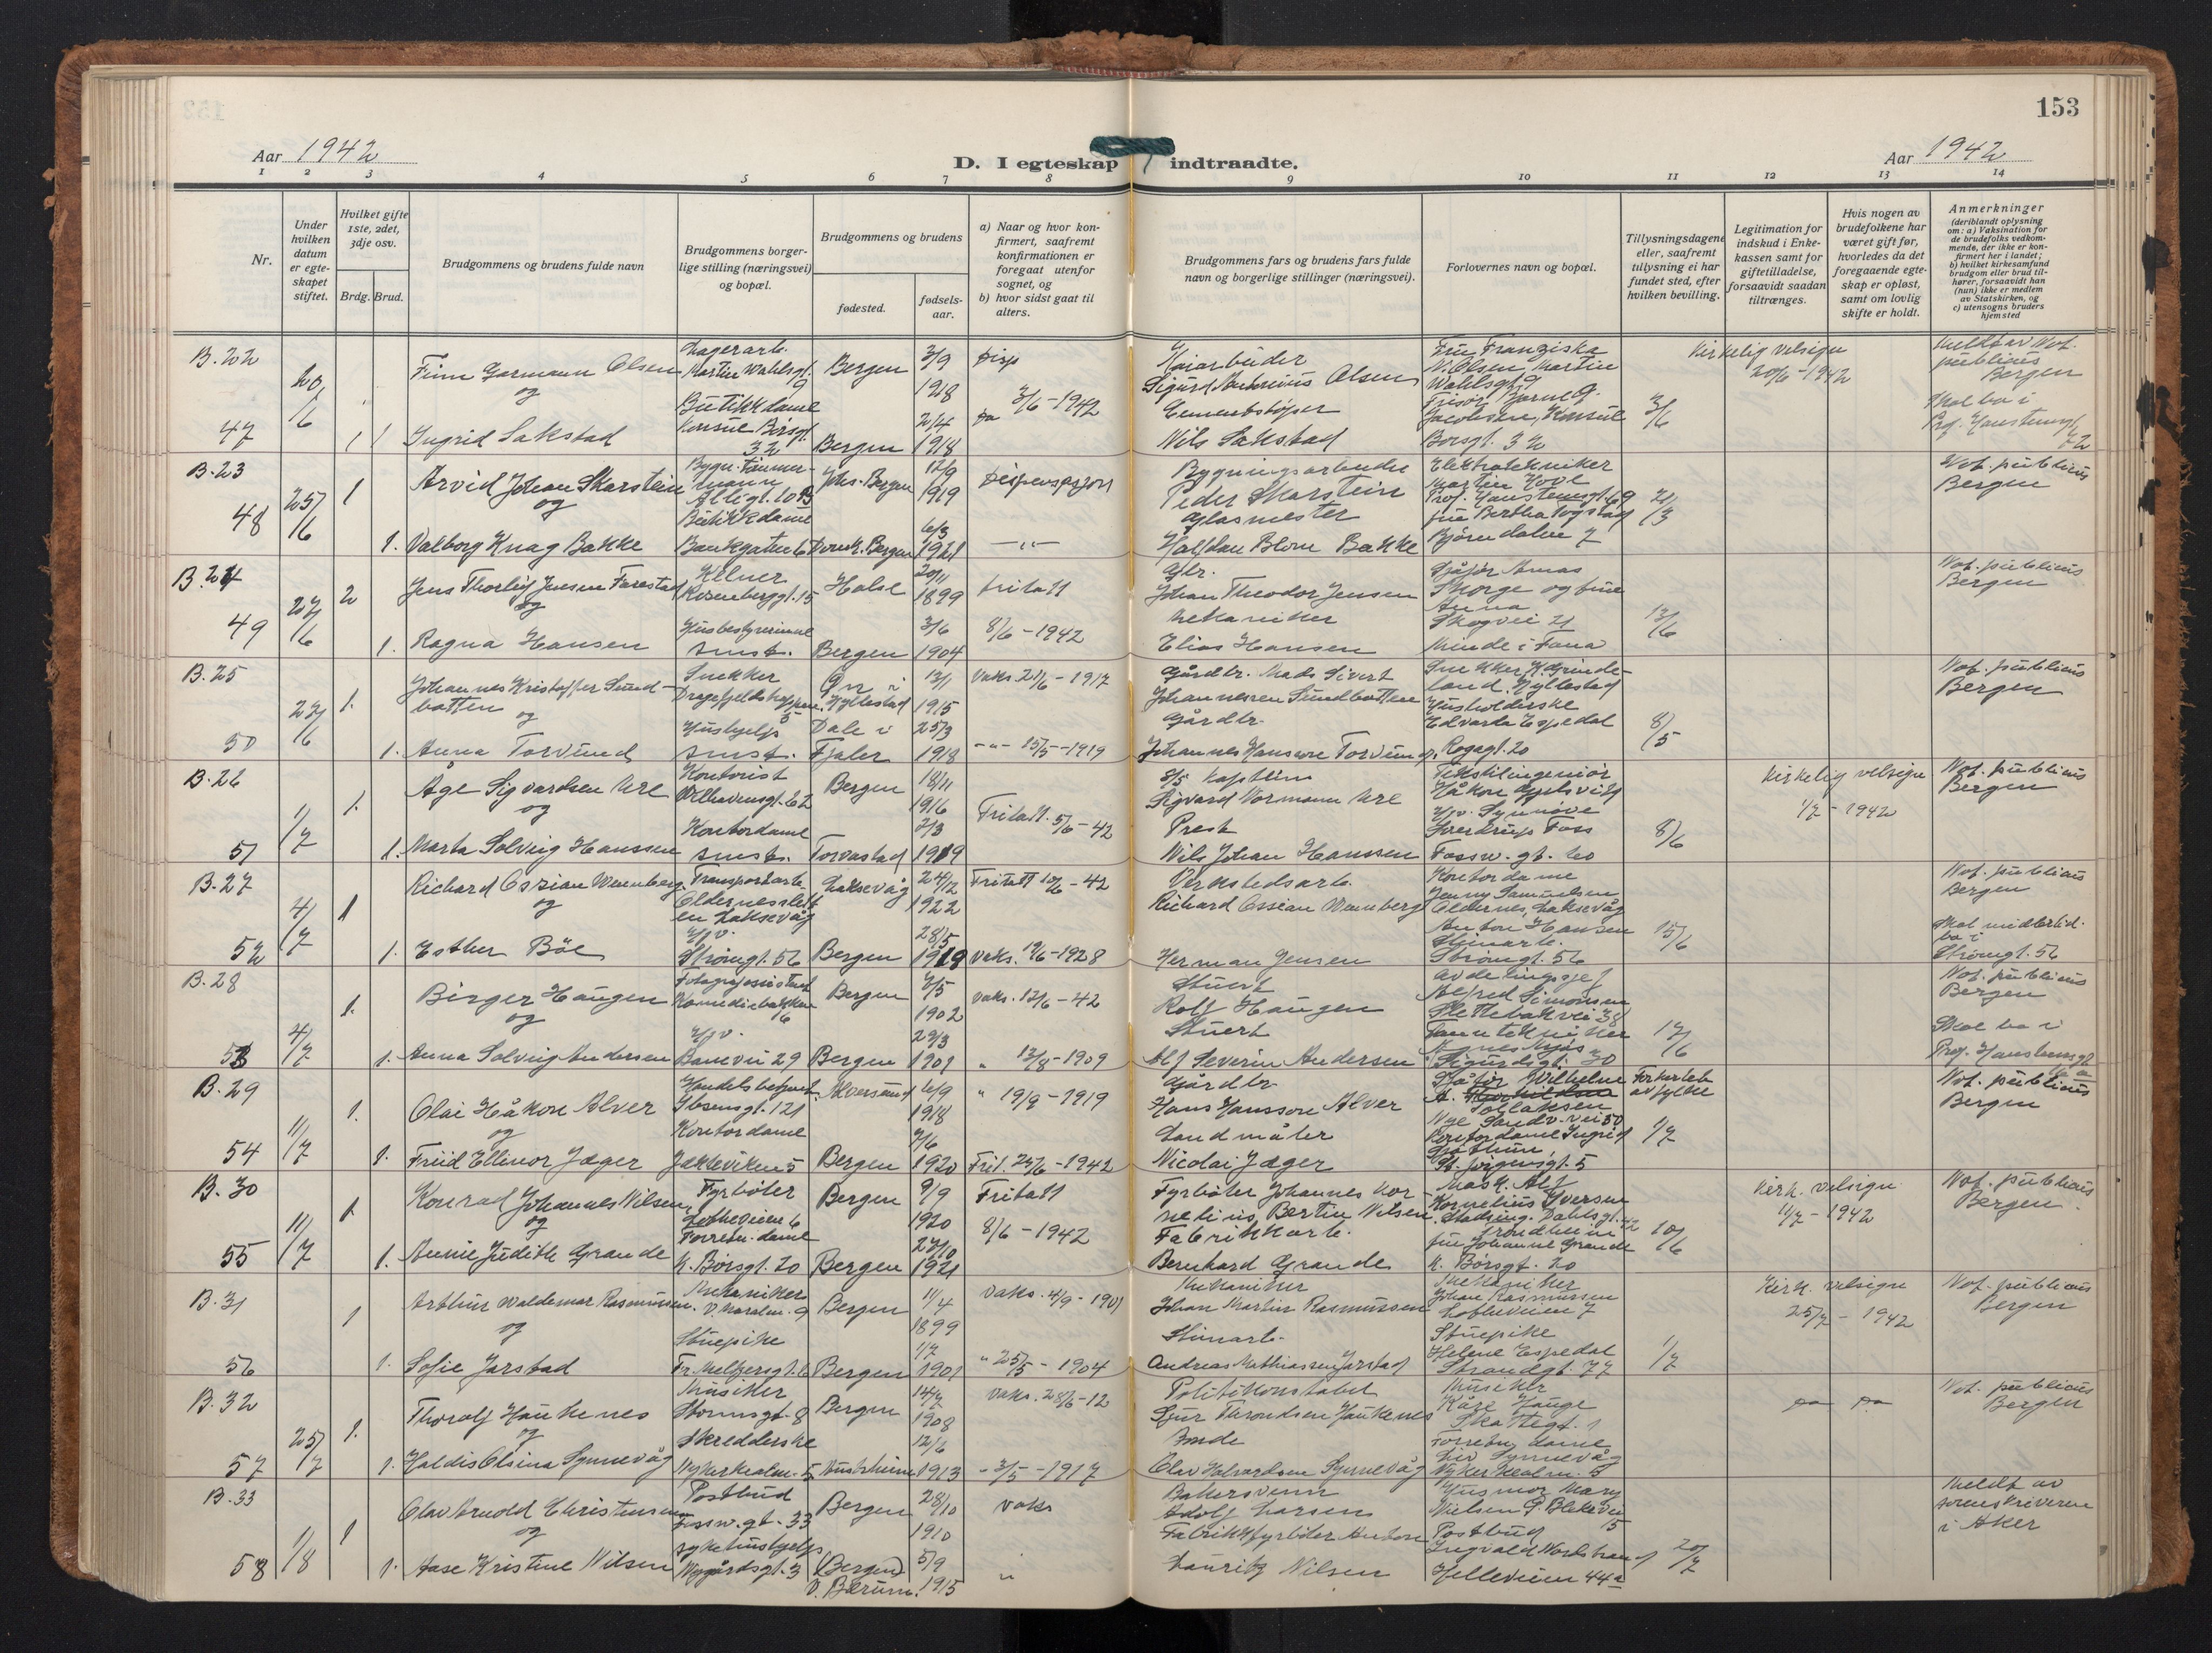 153
Aar 1942
D. I egteskap indtraadte.
Aar 1942
1 2 3 4 5 6 7 8 9 10 11 12 13 14
Nr.
Under hvilken datum er egteskapet stiftet.
Hvilket gifte 1ste, 2det, 3dje osv.
Brdg. Brud.
Brudgommens og brudens fulde navn
Brudgommens borgerlige stilling (næringsvei) og bopæl.
Brudgommens og brudens
fødested.
fødselsaar.
a) Naar og hvor konfirmert, saafremt konfirmationen er foregaat utenfor sognet, og
b) hvor sidst gaat til alters.
Brudgommens fars og brudens fars fulde navn og borgerlige stillinger (næringsvei).
Forlovernes navn og bopæl.
Tillysningsdagene eller, saafremt tillysning ei har fundet sted, efter hvilken bevilling.
Legitimation for indskud i Enkekassen samt for giftetilladelse, forsaavidt saadan tiltrænges.
Hvis nogen av brudefolkene har været gift før, hvorledes da det foregaaende egteskap er opløst, samt om lovlig skifte er holdt.
Anmerkninger
(deriblandt oplysning om: a) Vaksination for de brudefolks vedkommende, der ikke er konfirmert her i landet;
b) hvilket kirkesamfund brudgom eller brud tilhører, forsaavidt han (hun) ikke er medlem av Statskirken, og
c) utensogns bruders hjemsted
B.22
47
20/6
1 1
Finn Garmann Olsen
og
Ingrid Sakstad
Lagerarb.
Martin Wahlsgt. 9
Butikkdame
Konsul Børsgt.
32
Bergen 3/9 1918
Bergen 2/4 1918
Disp
3/6-1942
Sigurd Olsen
Cementstøper
Nils Sakstad
Fru Franziska
N. Olsen, Martin
Wahlsgt 9
Frisør Bjarne G.
Jacobsen, Konsul
Børsgt. 32
3/6
Kirkelig velsigne
20/6-1942
Meldt av Not.
publicus
Bergen
Skal bo i
B.23
48
25/6
1
1.
Arvid Johan Skarstein
og
Valborg Knag Bakke
Bygn. tømmermann
Butikkdame
Bankgaten 6
Johs. Bergen 12/9 1919
Domk. Bergen 6/3 1921
Dispensasjon
—"—
Bygningsarbeider
Peder Skarstein
Glasmester
Halfdan Blom Bakke
Elektrotekniker
Martin Hove
Prof. Hansteensgt. 69
fru Bertha Togstad
Bjørndalen 7
21/3
Not. publicus
Bergen
B.24
49
27/6
2
1.
Jens Thorleif Jensen Farestad
og
Ragna Hansen
Kelner
Rosenberggt. 15
Husbestyrerinne
smst.
Halse 20/11 1899
Bergen 3/6 1904
fritatt
8/6-1942
Gbr.
Johan Theodor Jensen
Mekaniker
Elias Hansen
Sjåfør Amas
Skorge og frue
Anna
Skogvei 21
Minde i Fana
12/6
Not. publicus
Bergen
B.25
50
27/6
1.
1.
Johannes Kristoffer Sundbotten
og
Anna Torvund
Snekker
Dragefjeldstrappen 5
Hushjelp
smst.
Hyllestad 13/1 1915
Dale i Fjaler 25/3 1918
Vaks. 21/6-1917
-"- 15/5-1919
Gårdbr. Mads Sivert
Johannessen Sundbotten
Gårdbr.
Johannes Hansson Torvund
Snekker H. Grindeland, Hyllestad
Husholderske
Edvarda Espedal
Rogagt. 20
8/5
Not. publicus
Bergen
B.26
51
1/7
1.
1.
Åge Sigvardsen Ure
og
Marta Solveig Hanssen
Kontorist
Welhavensgt. 62
Kontordame
smst.
Bergen 18/11 1916
Torvastad 2/3 1919
Fritatt. 5/6-42
D/S kaptein
Sigvard Normann Ure
Prest
Nils Johan Hanssen
Tekstilingeniør
Håkon
Hjv. Synnøve
Sverdrup Foss
Fossw.gt. 20
8/6
Kirkelig velsigne
1/7-1942
Not. publicus
Bergen
B.27
52
4/7
1
1.
Richard Ossian Wennberg
og
Esther Böe
Transportarb.
Oldernessletten Laksevåg
Hjv.
Strømgt. 56
Laksevåg 24/12 1922
Bergen 28/5 1919
Fritatt 10/6-42
vaks. 19/6-1928
Verkstedsarb.
Richard Ossian Wennberg
Herman Jensen
Kontordame
Jenny Samuelsen
Oldernes, Laksevåg
Anton Hansen
Strømgt. 56
15/6
Not. publicus
Bergen
Skal midlertid.
bo i
Strømgt. 56
B.28
53
4/7
1.
1.
Birger Haugen
og
Anna Solveig Andersen
Fotografassistent
Komediebakken
16
Hjv.
Banevei 29
Bergen 7/5 1902
Bergen 29/3 1901
vaks. 12/6-42
" 13/8-1909
Stuert
Rolf Haugen
Stuert
Alf Severin Andersen
Avdelingssjef
Alfred Simonsen
Slettebakvei 38
Tanntekniker
Sigurdsgt. 30
17/6
Not. publicus
Bergen
Skal bo i
Prof. Hansteensgt
B.29
54
11/7
1.
1.
Olai Håkon Alver
og
Fruid Ellinor Jæger
Handelsbetjent
Ibsensgt. 121
Kontordame
Jekteviken 5
Alversund 6/9 1918
Bergen 7/6 1920
" 19/9-1919
Frit. 25/6-1942
Gårdbr
Hans Hansson Alver
Landmåler
Nicolai Jæger
Sjåfør Wilhelm
A. Tollaksen
Nye Sandv. vei 50
Kontordame Ingrid
St. Jørgensgt. 5
Forkortet
av fylke
1/7
Not. publicus
Bergen
B.30
55
11/7
1
1.
Konrad Johannes Nilsen
og
Annie Judith Grande
Fyrbøter
Løbbeveien 6
Forretn. dame
K. Børsgt. 20
Bergen 9/9 1920
Bergen 27/10 1921
Fritatt
8/6-1942
Fyrbøter Johannes Kornelius Bertin Nilsen
Fabrikkarb.
Bernhard Grande
Mask. Alf
Kornelius Iversen
Stadsing. Dahlsgt. 42
Trondheim
fru Johanne Grande
K. Børsgt. 20
10/6
Kirk. velsigne
11/7-1942
Not. publicus
Bergen
B.31
56
1
1.
Arthur Waldemar Rasmussen
og
Sofie Jarstad
Mekaniker
V. Muralm. 9
Stuepike
Fr. Meltzersgt. 6
Bergen 11/4 1899
Bergen 1/7 1901
Vaks. 4/9-1901
" 25/5-1904
Mekaniker
Johan Martin Rasmussen
Andreas Mathiassen Jarstad
Mekaniker
Johan Rasmussen
Løbbeveien 7
Stuepike
Helene Espedal
Strandgt. 77
1/7
Kirk. velsigne
25/7-1942
Not. publicus
Bergen
B.32
57
25/7
1.
1.
Thoralf Haukenes
og
Haldis Olsina Synnevåg
Musiker
Stormsgt. 8
Skredderske
Nykirkealm. 5
Bergen 14/7 1908
Austrheim 12/6 1913
Vaks. 28/6-12
- 3/5-1917
Politikonstabel
Sjur Throndsen Haukenes
Bonde
Olav Halvardson Synnevåg
Musiker
Kåre Hauge
Skattegt. 1
Forretn. dame
Liv Synnevåg
Nykirkealm. 5
Not. publicus
Bergen
B.33
58
1/8
1
1.
Olav Arnold Christensen
og
Aase Kristine Nilsen
Postbud
Fossw.gt. 33
sykehushjelp
Nygårdsgt. 3
Bergen 28/10 1910
(Bergen)
V. Bærum. 5/9 1915
vaks
"
Bakersvenn
Adolf Larsen
Fabrikkfyrbøter Anton
Lauritz Nilsen
Husmor Mary
Nielsen P. Blekevei
15
Postbud
Ingvald Nordstrand
Helleveien 44a
20/7
Meldt av
sorenskriveren
i Aker